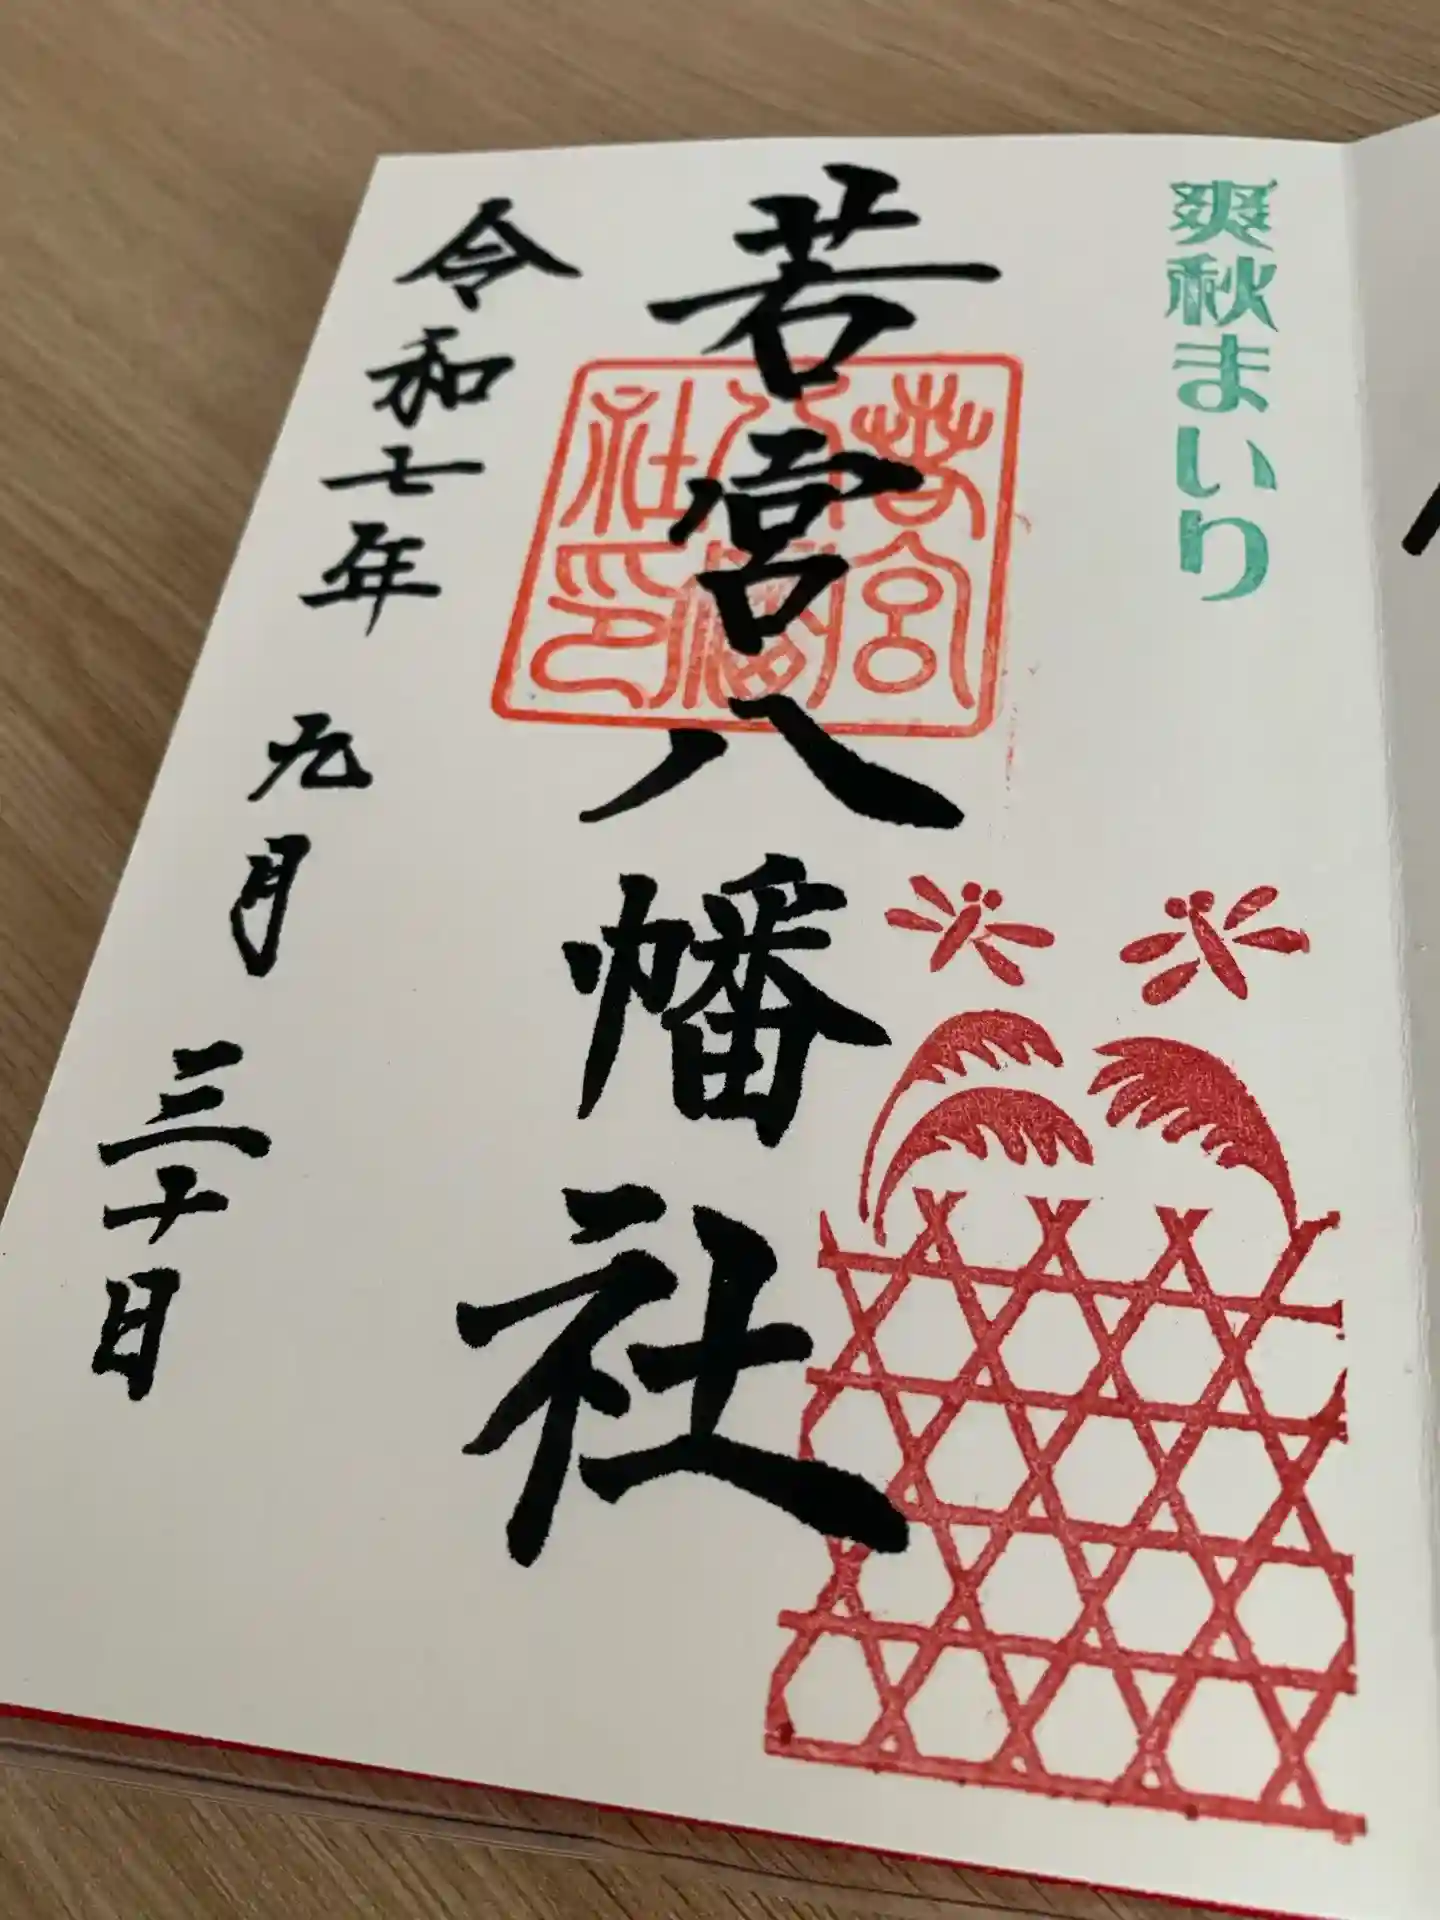 爽秋まいり
若宮八幡社
若宮八幡社印
令和七年 九月 三十日